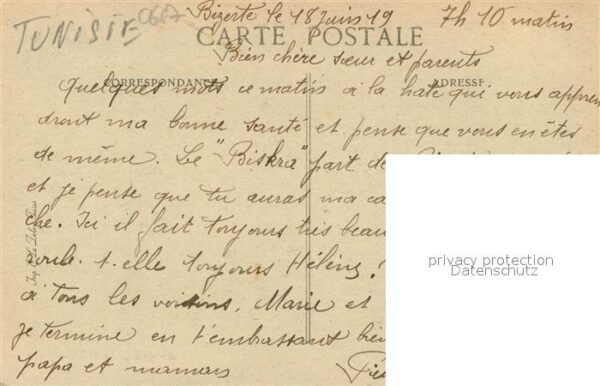 TUNISIE
Bizerte le 18 juin 19 7h 10 matin
CARTE POSTALE
Bien chère sœur et parents
CORRESPONDANCE ADRESSE
Quelques mots ce matin à la hate qui vous appren
dront ma bonne santé et pense que vous en êtes
de même. Le "Biskra" part de
et je pense que tu auras ma ca
che. Ici il fait toujours très beau
roule-t-elle toujours Hélène?
à tous les voisins, Marie et
je termine en t'embrassant bien
papa et maman
privacy protection
Datenschutz